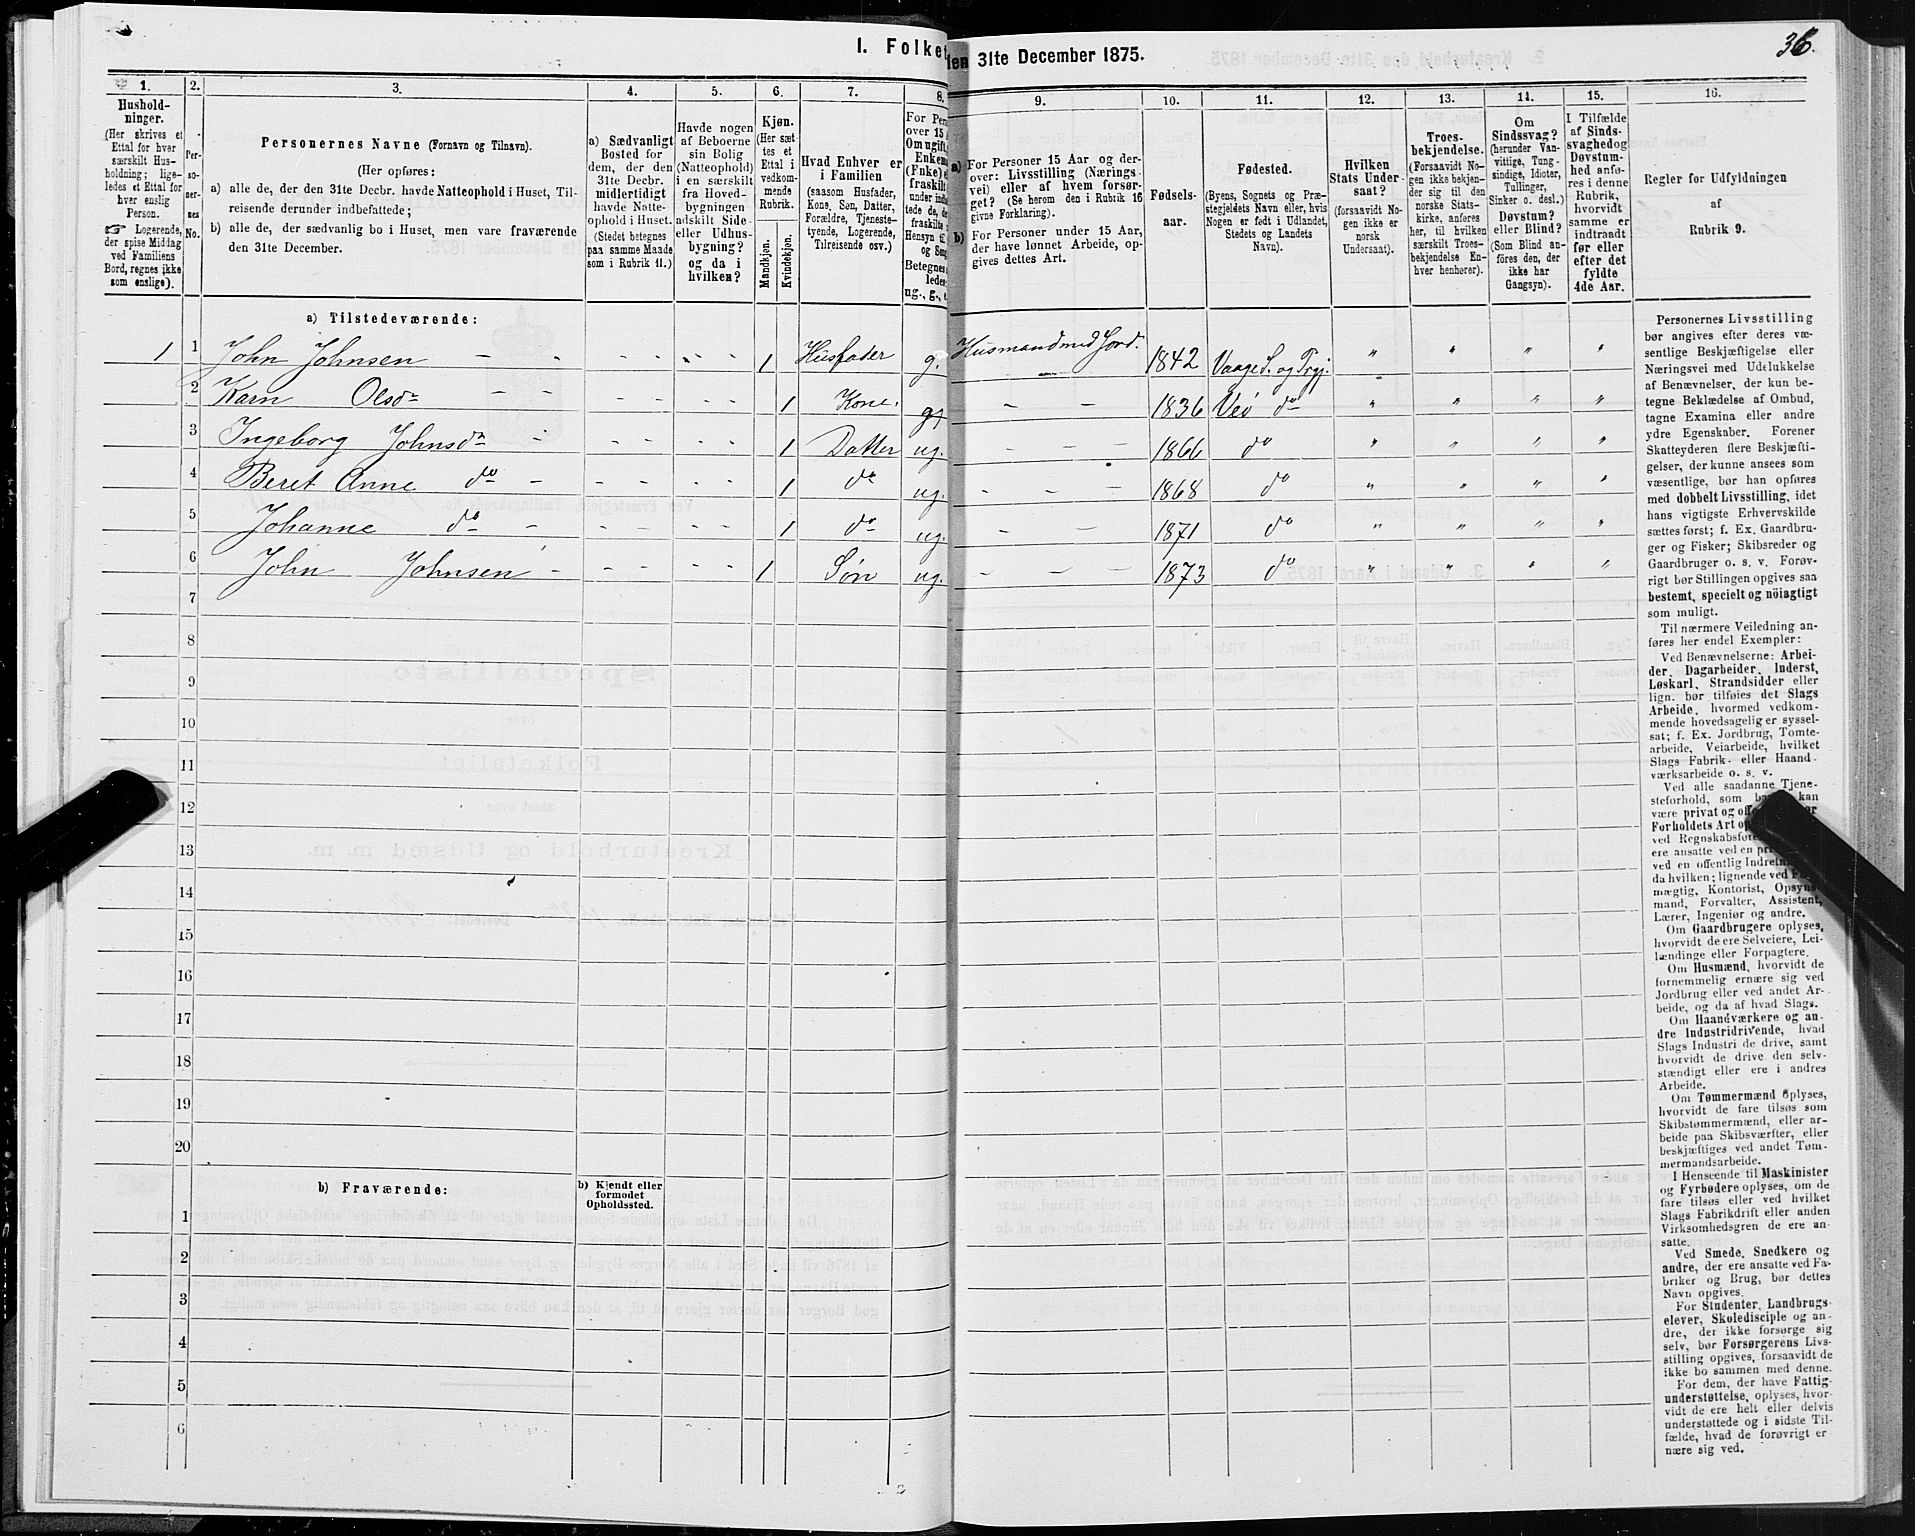 1. Folket
den 31te December 1875.
36.
1.
2.
3.
4.
5.
6.
7.
8.
9.
10.
11.
12.
13.
14.
15.
16.
Hushold-
ninger.
(Her skrives et
Ettal for hver
særskilt Hus-
holdning; lige-
ledes et Ettal for
hver enslig
Person.
☞ Logerende,
der spise Middag
ved Familiens
Bord, regnes ikke
som enslige).
Per-
so-
ner-
nes
No.
Personernes Navne (Fornavn og Tilnavn).
(Her opføres:
a) alle de, der den 31te Decbr. havde Natteophold i Huset, Til-
reisende derunder indbefattede;
b) alle de, der sædvanlig bo i Huset, men vare fraværende
den 31te December.
a) Sædvanligt
Bosted for
dem, der den
31te Decbr.
midlertidigt
havde Natte-
ophold i Huset.
(Stedet betegnes
paa samme Maade
som i Rubrik 11.)
Havde nogen
af Beboerne
sin Bolig
(Natteophold)
i en særskilt
fra Hoved-
bygningen
adskilt Side-
eller Udhus-
bygning?
og da i
hvilken?
Kjøn.
(Her sæt-
tes et
Ettal i
vedkom-
mende
Rubrik.
Mandkjøn.
Kvindekjøn.
Hvad Enhver er
i Familien
(saasom Husfader,
Kone, Søn, Datter,
Forældre, Tjeneste-
tyende, Logerende,
Tilreisende osv.)
For Pers
over 15 A
Om ugift,
Enkema
(Enke) e
fraskilt
under indb
tede de, de
fraskilte
Hensyn ti
og Sen
Betegnes
ledes
ug., g., e
a) For Personer 15 Aar og der-
over: Livsstilling (Nærings-
vei) eller af hvem forsør-
get? (Se herom den i Rubrik 16
givne Forklaring).
b) For Personer under 15 Aar,
der have lønnet Arbeide, op-
gives dettes Art.
Fødsels-
aar.
Fødested.
(Byens, Sognets og Præ-
stegjeldets Navn eller, hvis
Nogen er født i Udlandet,
Stedets og Landets
Navn).
Hvilken
Stats Under-
saat?
(forsaavidt No-
gen ikke er
norsk
Undersaat).
Troes-
bekjendelse.
(Forsaavidt No-
gen ikke bekjen-
der sig til den
norske Stats-
kirke, anføres
her, til hvilken
særskilt Troes-
bekjendelse En-
hver henhører).
Om
Sindssvag?
(herunder Van-
vittige, Tung-
sindige, Idioter,
Tullinger,
Sinker o. desl.)
Døvstum?
eller Blind?
(Som Blind an-
føres den, der
ikke har
Gangsyn).
I Tilfælde
af Sinds-
svaghed og
Døvstum-
hed anfø-
res i denne
Rubrik,
hvorvidt
samme er
indtrandt
før eller
efter det
fyldte
4de Aar.
Regler for Udfyldningen
af
Rubrik 9.
a) Tilstedeværende:
1 1 John Johnsen - - - - - - - 1 Husfader g. Husmand med Jord. 1842 Vaage S. og Prgj. " " " "
2 Karn Olsdr - - - - - - - 1 Kone. g. - - 1836 Veø do " " " "
3 Ingeborg Johnsdr - - - - - - 1 Datter ug. - - 1866 do " " " "
4 Beret Anne do - - - - - - 1 do ug. - - - 1868 do " " " "
5 Johanne do - - - - - - 1 do ug. - - 1871 do " " " "
6 John Johnsen - - - - - - 1 Søn ug. - - - 1873 do " " " "
7
8
9
10
11
12
13
14
15
16
17
18
19
20
b) Fraværende:
b) Kjendt eller
formodet
Opholdssted.
1
2
3
4
5
6
Personernes Livsstilling
bør angives efter deres væ-
sentlige Beskjæftigelse eller
Næringsvei med Udelukkelse
af Benævnelser, der kun be-
tegne Beklædelse af Ombud,
tagne Examina eller andre
ydre Egenskaber. Forener
Skatteyderen flere Beskjæfti-
gelser, der kunne ansees som
væsentlige, bør han opføres
med dobbelt Livsstilling, idet
hans vigtigste Erhvervskilde
sættes først; f. Ex. Gaardbru-
ger og Fisker; Skibsreder og
Gaardbruger o. s. v. Forøv-
rigt bør Stillingen opgives saa
bestemt, specielt og nöiagtigt
som muligt.
Til nærmere Veiledning an-
føres her endel Exempler:
Ved Benævnelserne: Arbei-
der, Dagarbeider, Inderst,
Løskarl, Strandsidder eller
lign. bør tilføies det Slags
Arbeide, hvormed vedkom-
mende hovedsagelig er syssel-
sat; f. Ex. Jordbrug, Tomte-
arbeide, Veiarbeide, hvilket
Slags Fabrik- eller Haand-
værksarbeide o. s. v.
Ved alle saadanne Tjene-
steforhold, som b kan
være privat og off
Forholdets Art op
ved Regnskabsfø
ere ansatte ved en pri
ved en offentlig Indret
da hvilken; lignende ved
mægtig, Kontorist, Opsyns-
mand, Forvalter, Assistent,
Lærer, Ingeniør og andre.
Om Gaardbrugere oplyses,
hvorvidt de ere Selveiere, Lei-
lændinge eller Forpagtere.
Om Husmænd, hvorvidt de
fornemmelig ernære sig ved
Jordbrug eller ved andet Ar-
beide, og da af hvad Slags.
Om Haandværkere og an-
dre Industridrivende, hvad
Slags Industri de drive, samt
hvorvidt de drive den selv-
stændigt eller ere i andres
Arbeide.
Om Tømmermænd oplyses,
hvorvidt de fare tilsøs som
Skibstømmermænd, eller ar-
beide paa Skibsværfter, eller
beskjæftiges ved andet Tøm-
mermandsarbeide.
I Henseende til Maskinister
og Fyrbødere oplyses, om de
fare tilsøs eller ved hvilket
Slags Fabrikdrift eller anden
Virksomhedsgren de ere an-
satte.
Ved Smede, Snedkere og
andre, der ere ansatte ved Fa-
briker og Brug, bør dettes
Navn opgives.
For Studenter, Landbrugs-
elever, Skoledisciple og an-
dre, der ikke forsørge sig
selv, bør Forsørgerens Livs-
stilling opgives, forsaavidt de
ikke bo sammen med denne.
For dem, der have Fattig-
understøttelse, oplyses, hvor-
vidt de ere helt eller delvis
understøttede og i sidste Til-
fælde, hvad de forøvrigt er-
nære sig ved.